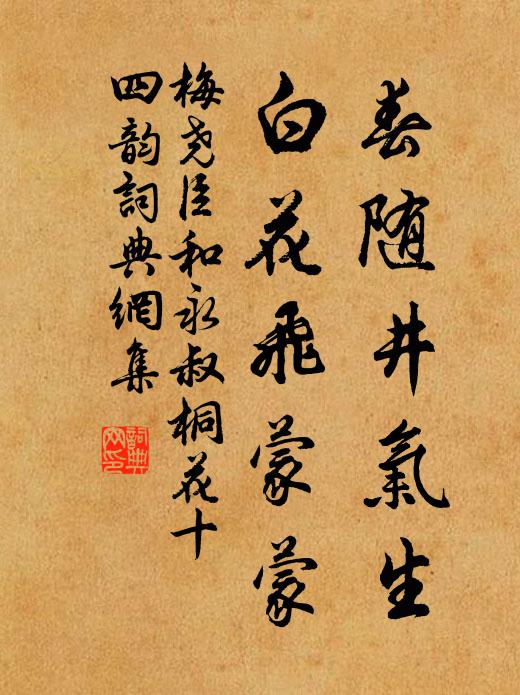 春随井氣生
白花飛蒙蒙
梅尭臣和永叔桐花十
四韵詞典網集
詞典網印